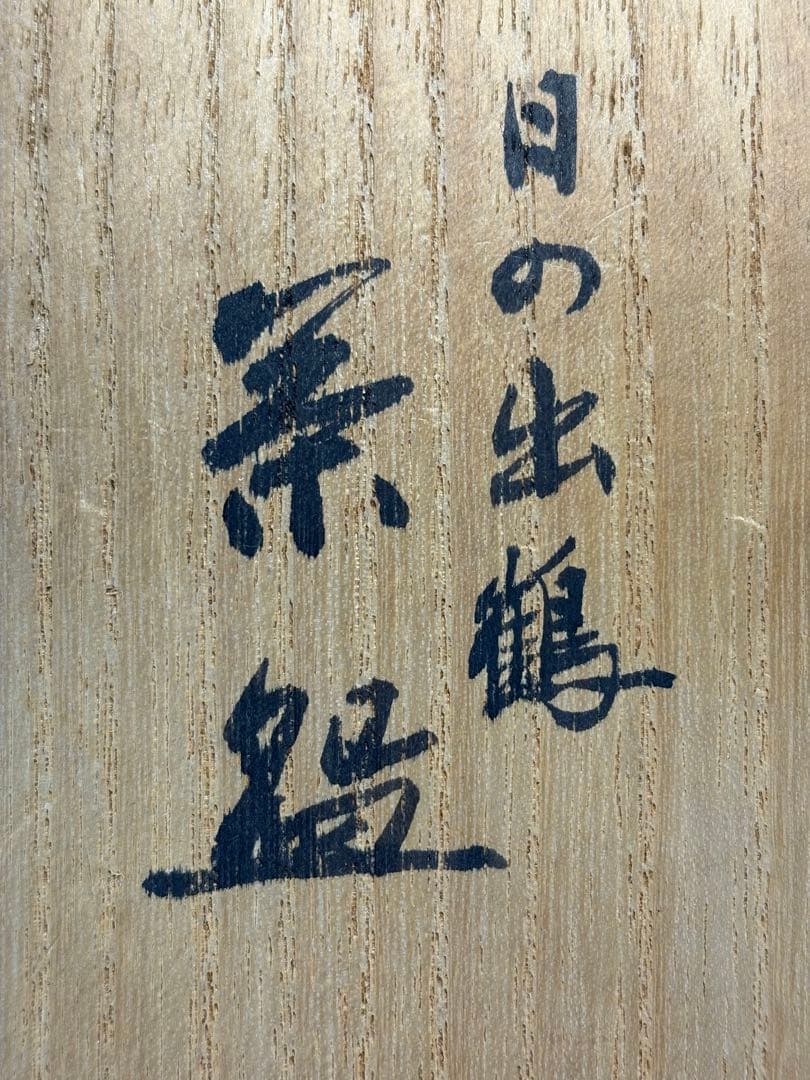 日の出鶴
茶盌